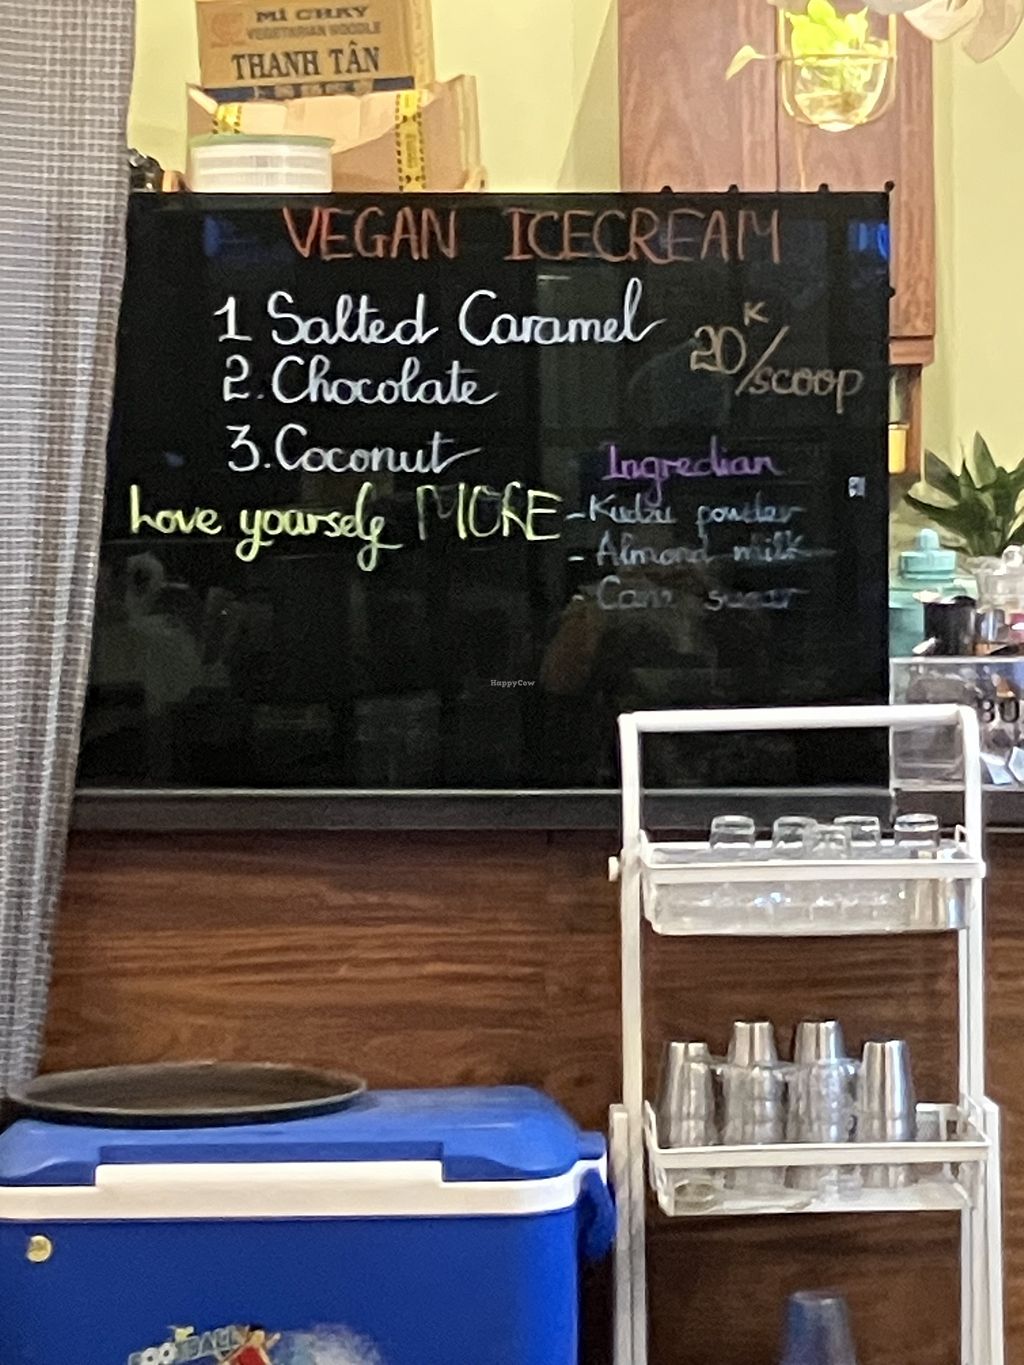 MÌ CHAY
VEGETARIAN NOODLE
THANH TÂN
VEGAN ICECREAM
1 Salted Caramel
2. Chocolate
3. Coconut
20K/scoop
Love yourself MORE
Ingredian
- Kudzu powder
- Almond milk
- Cane sugar
HappyCow
FOOTBALL